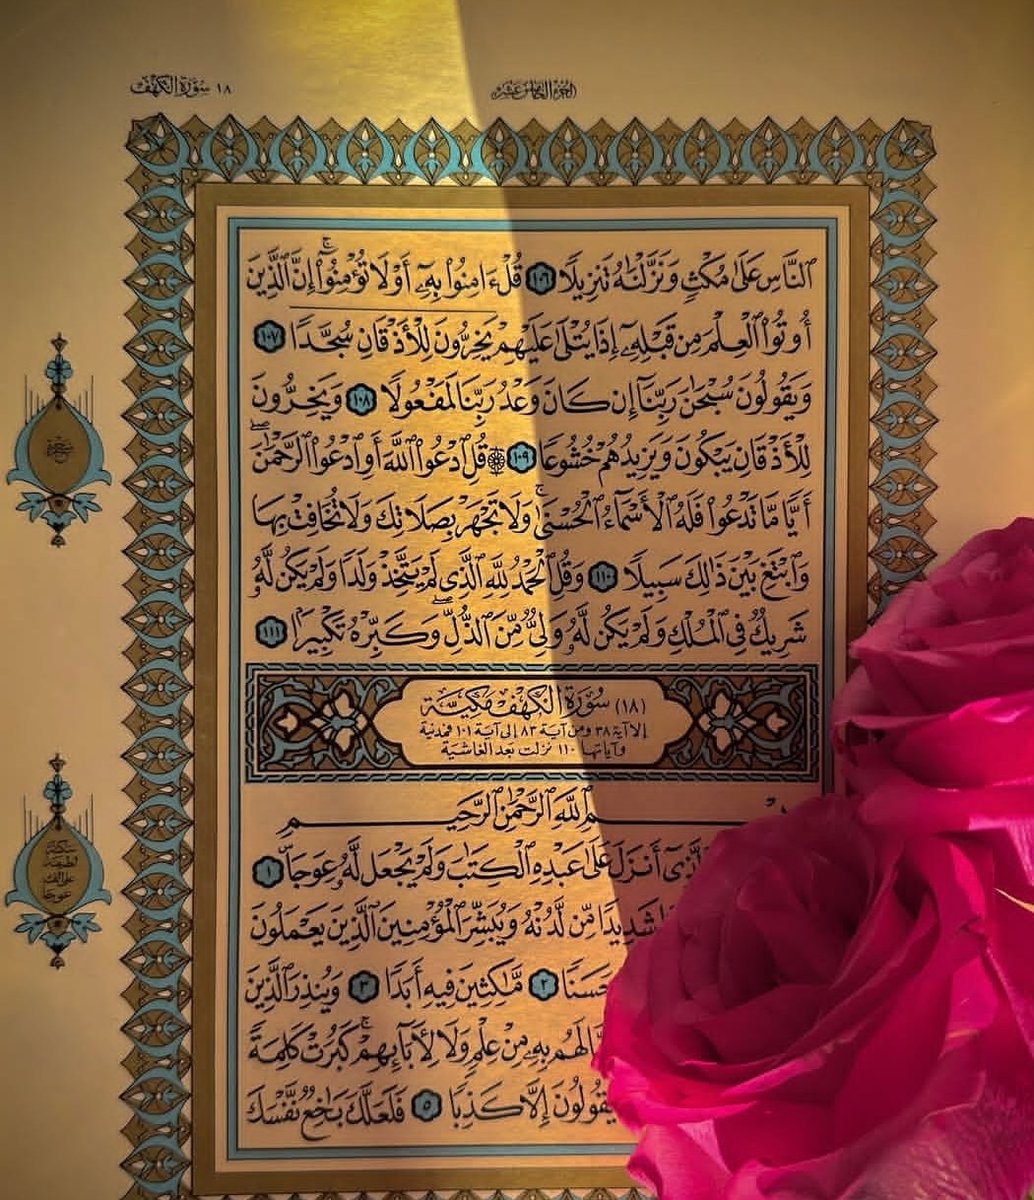 ١٨ سُورَةُ الكَهْفِ
الجزء الخامس عشر
ٱلنَّاسِ عَلَىٰ مُكْثٍ وَنَزَّلْنَٰهُ تَنزِيلًا ١٠٦ قُلْ ءَامِنُوا۟ بِهِۦٓ أَوْ لَا تُؤْمِنُوٓا۟ ۚ إِنَّ ٱلَّذِينَ
أُوتُوا۟ ٱلْعِلْمَ مِن قَبْلِهِۦٓ إِذَا يُتْلَىٰ عَلَيْهِمْ يَخِرُّونَ لِلْأَذْقَانِ سُجَّدًا ١٠٧
وَيَقُولُونَ سُبْحَٰنَ رَبِّنَآ إِن كَانَ وَعْدُ رَبِّنَا لَمَفْعُولًا ١٠٨ وَيَخِرُّونَ
لِلْأَذْقَانِ يَبْكُونَ وَيَزِيدُهُمْ خُشُوعًا ١٠٩ قُلِ ٱدْعُوا۟ ٱللَّهَ أَوِ ٱدْعُوا۟ ٱلرَّحْمَٰنَ ۖ
أَيًّا مَّا تَدْعُوا۟ فَلَهُ ٱلْأَسْمَآءُ ٱلْحُسْنَىٰ ۚ وَلَا تَجْهَرْ بِصَلَاتِكَ وَلَا تُخَافِتْ بِهَا
وَٱبْتَغِ بَيْنَ ذَٰلِكَ سَبِيلًا ١١٠ وَقُلِ ٱلْحَمْدُ لِلَّهِ ٱلَّذِى لَمْ يَتَّخِذْ وَلَدًا وَلَمْ يَكُن لَّهُۥ
شَرِيكٌ فِى ٱلْمُلْكِ وَلَمْ يَكُن لَّهُۥ وَلِىٌّ مِّنَ ٱلذُّلِّ ۖ وَكَبِّرْهُ تَكْبِيرًۢا ١١١
(١٨) سُورَةُ الكَهْفِ مَكِيَّة
إلا آية ٣٨ ومن آية ٨٣ إلى آية ١٠١ فمدنية
وآياتها ١١٠ نزلت بعد الغاشية
ٱللَّهِ ٱلرَّحْمَٰنِ ٱلرَّحِيمِ
ٱلَّذِىٓ أَنزَلَ عَلَىٰ عَبْدِهِ ٱلْكِتَٰبَ وَلَمْ يَجْعَل لَّهُۥ عِوَجَا ۜ ١
شَدِيدًا مِّن لَّدُنْهُ وَيُبَشِّرَ ٱلْمُؤْمِنِينَ ٱلَّذِينَ يَعْمَلُونَ
حَسَنًا ٢ مَّٰكِثِينَ فِيهِ أَبَدًا ٣ وَيُنذِرَ ٱلَّذِينَ
لَهُم بِهِۦ مِنْ عِلْمٍ وَلَا لِءَابَآئِهِمْ ۚ كَبُرَتْ كَلِمَةً
يَقُولُونَ إِلَّا كَذِبًا ٥ فَلَعَلَّكَ بَٰخِعٌ نَّفْسَكَ
سجدة
سكتة
لطيفة
على الف
عوجا